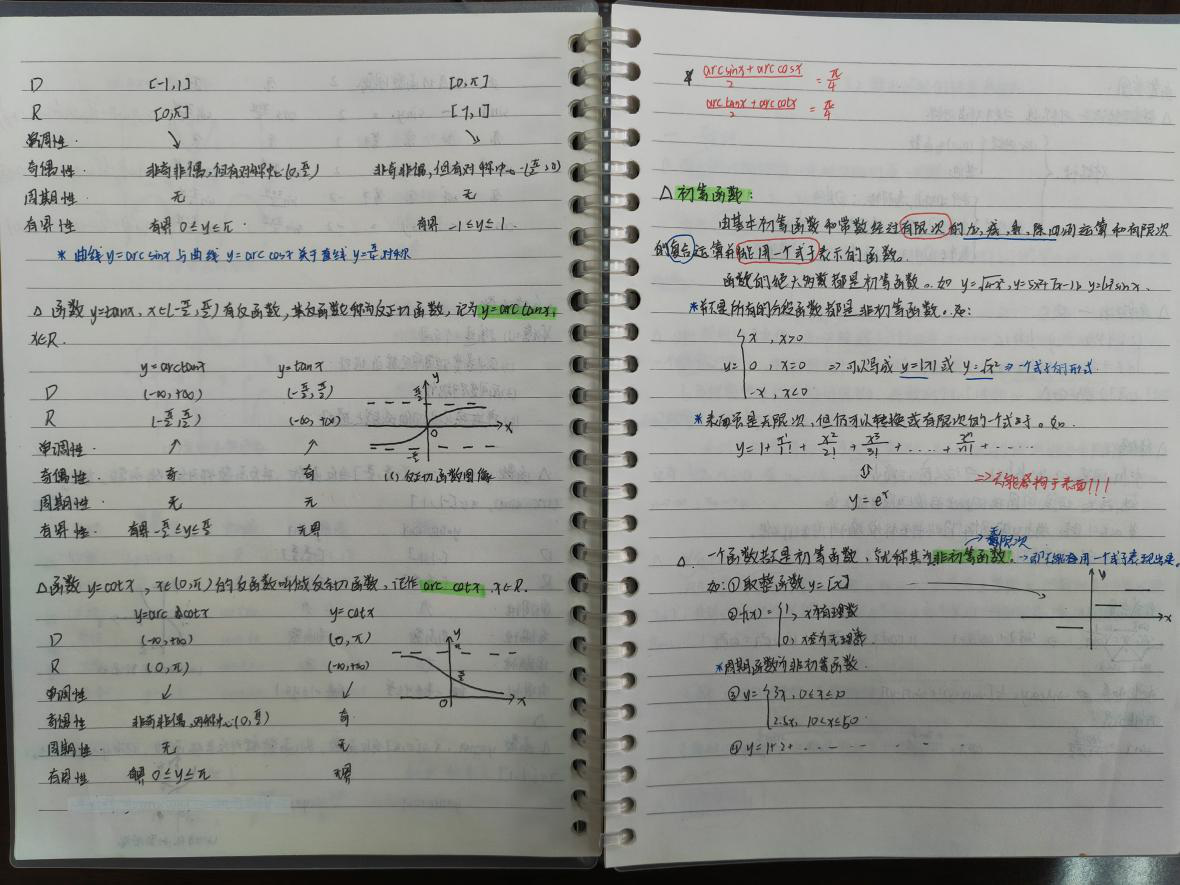 D [-1,1] [0,π]
R [0,π] [-1,1]
单调性. ↘ ↘
奇偶性. 非奇非偶,但有对称中心(0,π/2) 非奇非偶,但有对称中心(π/2,0)
周期性. 无 无
有界性. 有界 0≤y≤π 有界 -1≤y≤1.
* 曲线y=arc sinx与曲线 y=arc cosx关于直线 y=π/4对称
△ 函数 y=tanx, x∈(-π/2,π/2)有反函数,其反函数称为反正切函数,记为y=arc tanx,
x∈R.
y=arctanx y=tanx
D (-∞,+∞) (-π/2,π/2)
R (-π/2,π/2) (-∞,+∞)
单调性 ↗ ↗
奇偶性: 奇 奇
周期性: 无 无
有界性. 有界-π/2≤y≤π/2 无界
y
π/2
0
x
-π/2
(1) 反正切函数图像
△函数 y=cotx, x∈(0,π)的反函数叫做反余切函数,记作 arc cotx .x∈R.
y=arc cotx y=cotx
D (-∞,+∞) (0,π)
R (0,π) (-∞,+∞)
单调性 ↙ ↙
奇偶性 非奇非偶,对称中心(0,π/2) 奇
周期性: 无 无
有界性 有界 0≤y≤π 无界
y
π
π/2
0
x
* (arc sinx+arc cosx)/2 = π/4
(arc tanx+arc cotx)/2 = π/4
△ 初等函数:
由基本初等函数和常数经过有限次的加,减,乘,除四则运算和有限次
的复合运算并能用一个式子表示的函数。
函数的绝大多数都是初等函数。如 y=√(4-x²), y=5x²+7x-1,
*并不是所有的分段函数都是非初等函数。如:
y= { x , x>0
0 , x=0 ⇒可以写成 y=|x|或 y=√x² ⇒一个式子的形式.
-x , x<0
*表面虽是无限次,但仍可以转换成有限次的一个式子。如
y=1+x¹/1!+x²/2!+x³/3!+....+xⁿ/n!+....
⇕
y=eˣ
⇒不能局限于表面!!!
→ 有限次
△ 一个函数若不是初等函数,就称其为非初等函数。→即不能用一个式子表现出来。
如:①取整函数y=[x]
②f(x)= { 1, x为有理数
0, x为无理数
y
x
*周期函数为非初等函数.
③y= { 3x, 0≤x≤10
2.5x, 10<x≤50
④y=1+2+..